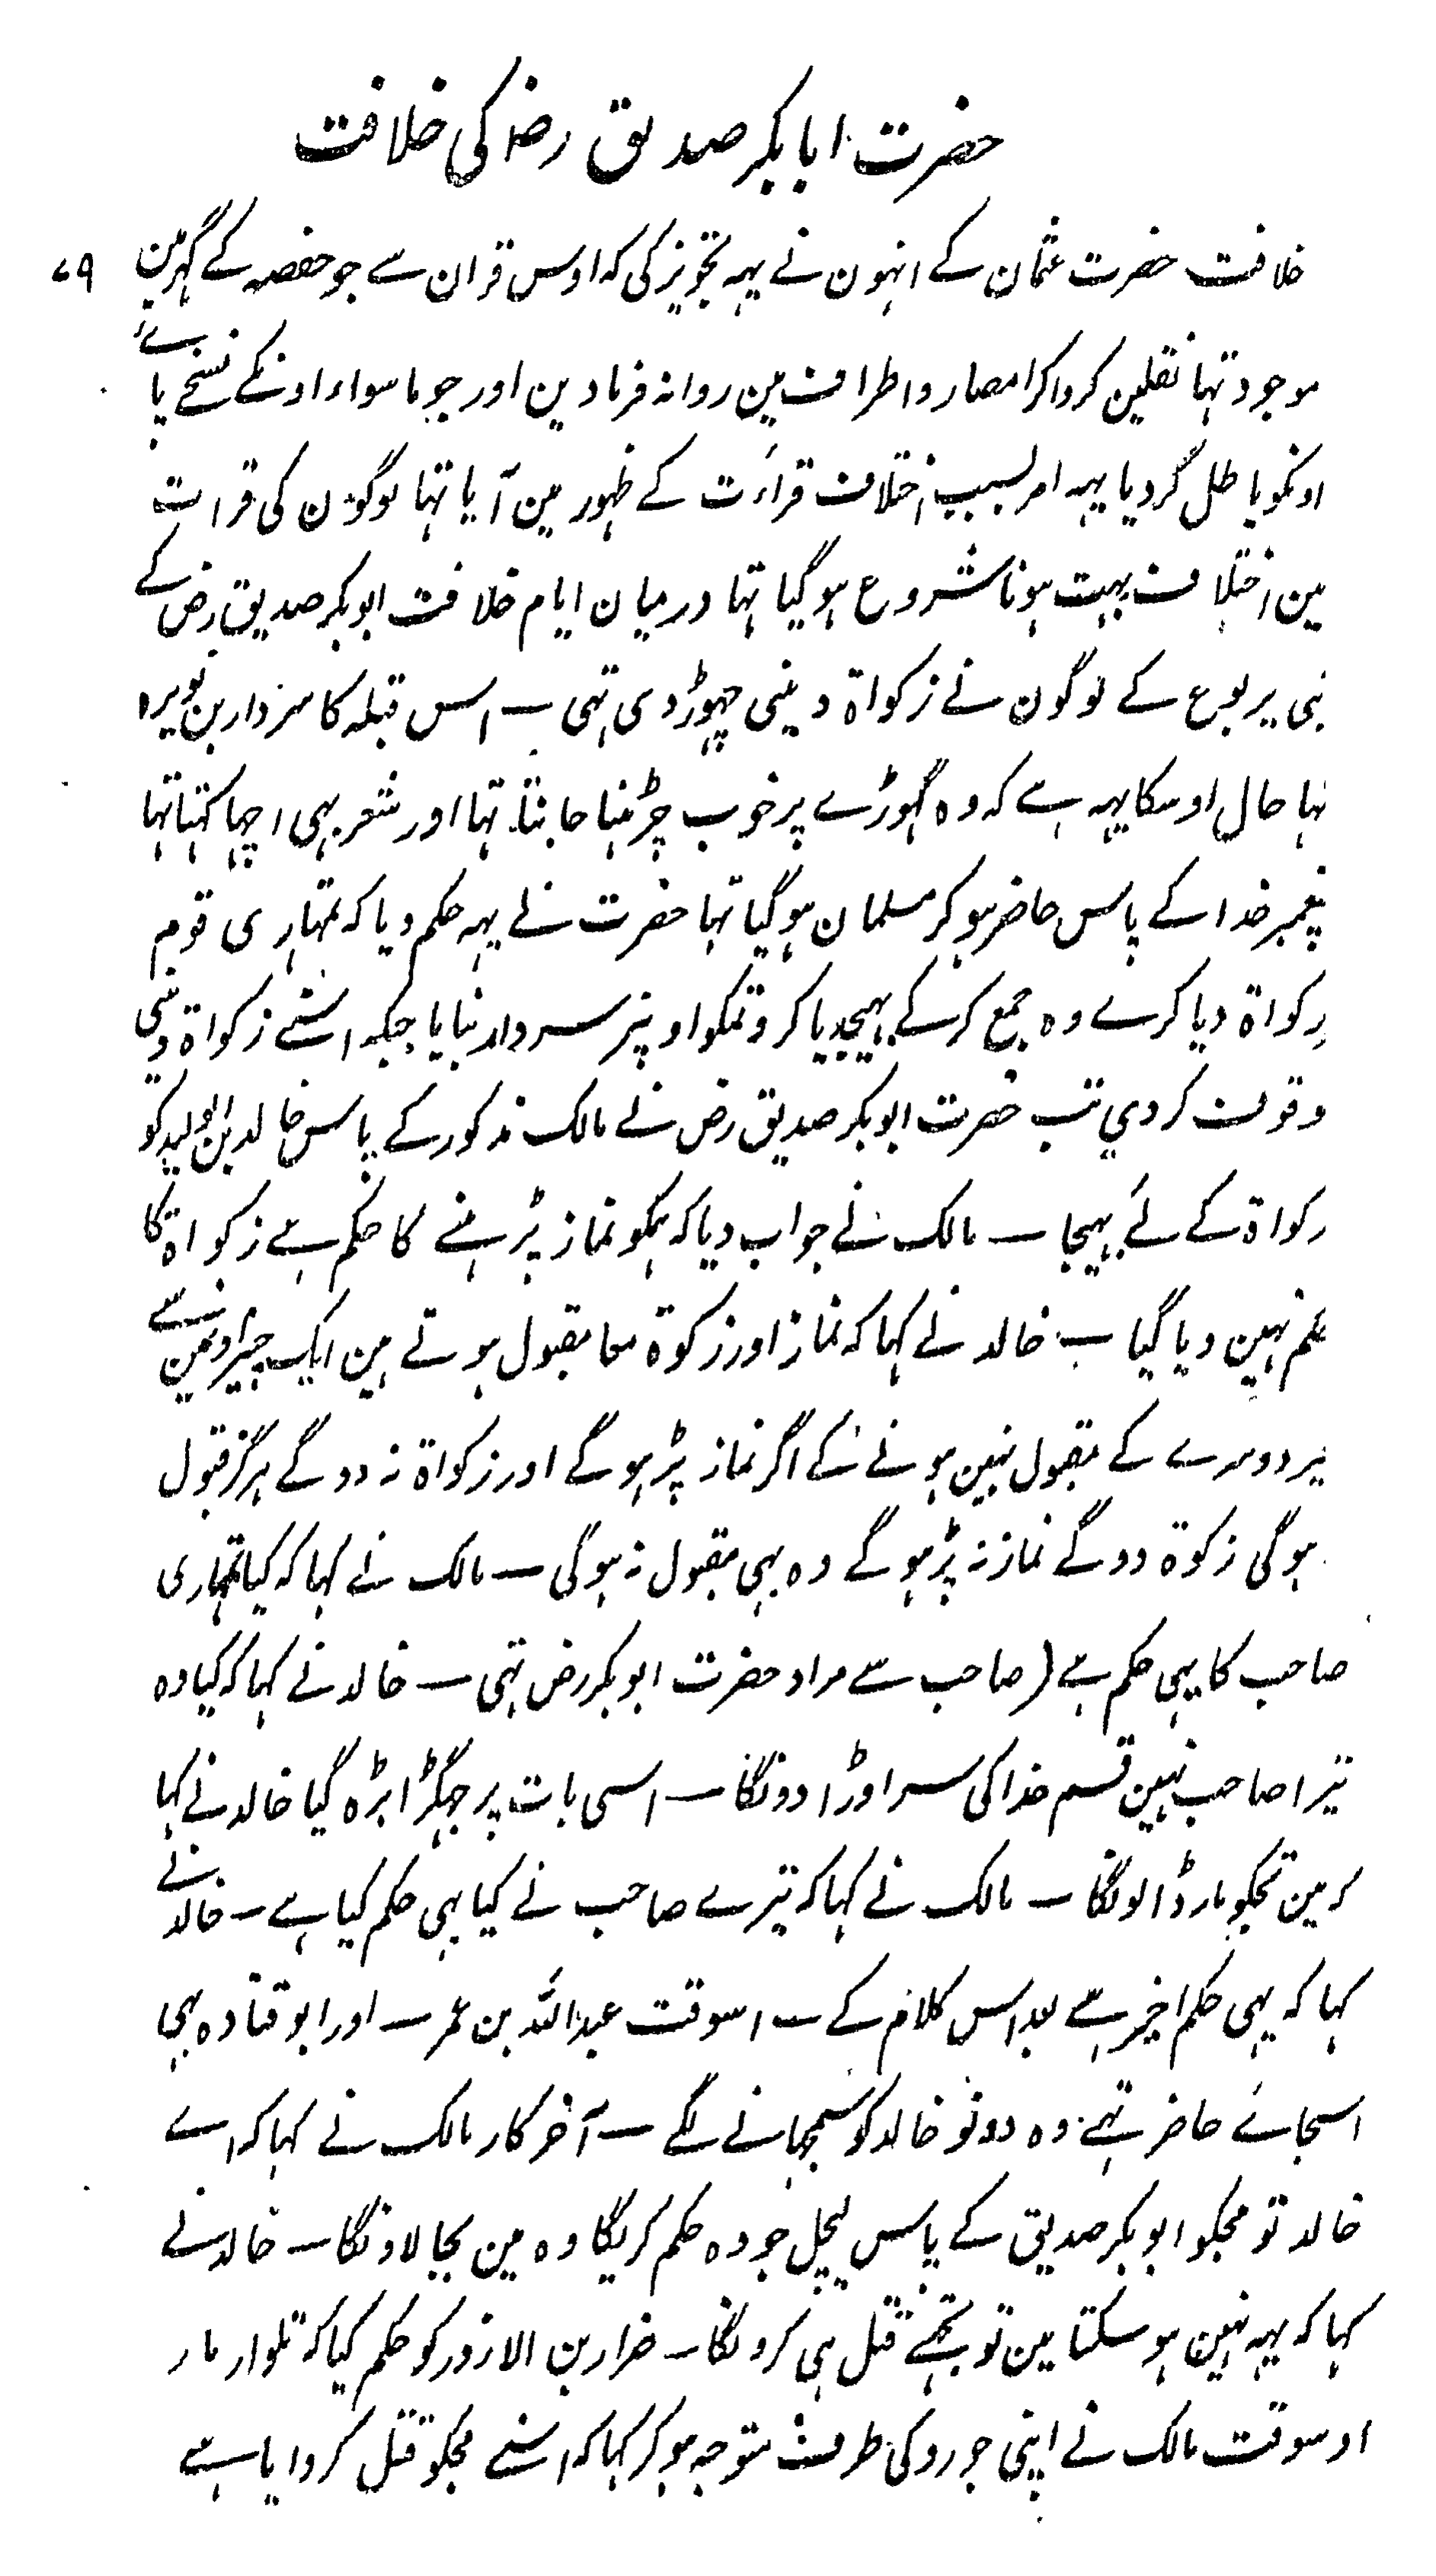 حضرت ابابکر صدیق رضہ کی خلافت
۷۹
خلافت حضرت عثمان کے انہون نے یہہ تجویز کی کہ اوس قران سے جو حفصہ کے گہر مین
موجود تہا نقلین کروا کر امصار و اطراف مین روانہ فرمادین اور جو ما سواء اونکے نسخے پائے
اونکو باطل کر دیا یہہ امر بسبب اختلاف قراءت کے ظہور مین آیا تہا لوگون کی قرات
مین اختلاف بہت ہونا شروع ہو گیا تہا درمیان ایام خلافت ابوبکر صدیق رض کے
بنی یربوع کے لوگون نے زکواۃ دینی چہوڑ دی تہی ۔ اس قبلہ کا سردار بن نویرہ
تہا حال اوسکا یہہ ہے کہ وہ گہوڑے پر خوب چڑہنا جانتا تہا اور شعر بہی اچہا کہتا تہا
پیغمبر خدا کے پاس حاضر ہو کر مسلمان ہو گیا تہا حضرت نے یہہ حکم دیا کہ تمہاری قوم
زکواۃ دیا کرے وہ جمع کر کے بہیجدیا کرو تمکو اونپر سردار بنایا جبکہ اسنے زکواۃ دینی
وقوف کردي تب حضرت ابوبکر صدیق رض نے مالک مذکور کے پاس خالد بن الولید کو
زکواۃ کے لئے بہیجا ۔ مالک نے جواب دیا کہ ہمکو نماز پڑہنے کا حکم ہے زکواۃ کا
حکم نہین دیا گیا ۔ خالد نے کہا کہ نماز اور زکوۃ معا مقبول ہوتے ہین ایک چیز اونمین سے
بر دوسرے کے مقبول نہین ہونے کے اگر نماز پڑہو گے اور زکواۃ نہ دو گے ہرگز قبول
ہو گی زکوۃ دو گے نماز نہ پڑہو گے وہ بہی مقبول نہ ہو گی ۔ مالک نے کہا کہ کیا تمہاری
صاحب کا یہی حکم ہے (صاحب سے مراد حضرت ابوبکر رض تہی ۔ خالد نے کہا کہ کیا وہ
تیرا صاحب نہین قسم خدا کی سر اوڑا دونگا ۔ اسی بات پر جہگڑا بڑہ گیا خالد نے کہا
کہ مین تجکو مار ڈالونگا ۔ مالک نے کہا کہ تیرے صاحب نے کیا یہی حکم کیا ہے ۔ خالد نے
کہا کہ یہی حکم اخیر ہے بعد اس کلام کے ۔ اسوقت عبد اللہ بن عمر ۔ اور ابو قتادہ بہی
اسجائے حاضر تہے وہ دونو خالد کو سمجہانے لگے ۔ آخر کار مالک نے کہا کہ اے
خالد تو مجکو ابوبکر صدیق کے پاس لیچل جو وہ حکم کریگا وہ مین بجا لاونگا ۔ خالد نے
کہا کہ یہہ نہین ہو سکتا مین تو تجہے قتل ہی کرونگا ۔ ضرار بن الازور کو حکم کیا کہ تلوار مار
اوسوقت مالک نے اپنی جورو کی طرف متوجہ ہو کر کہا کہ اسنے مجکو قتل کروایا ہے